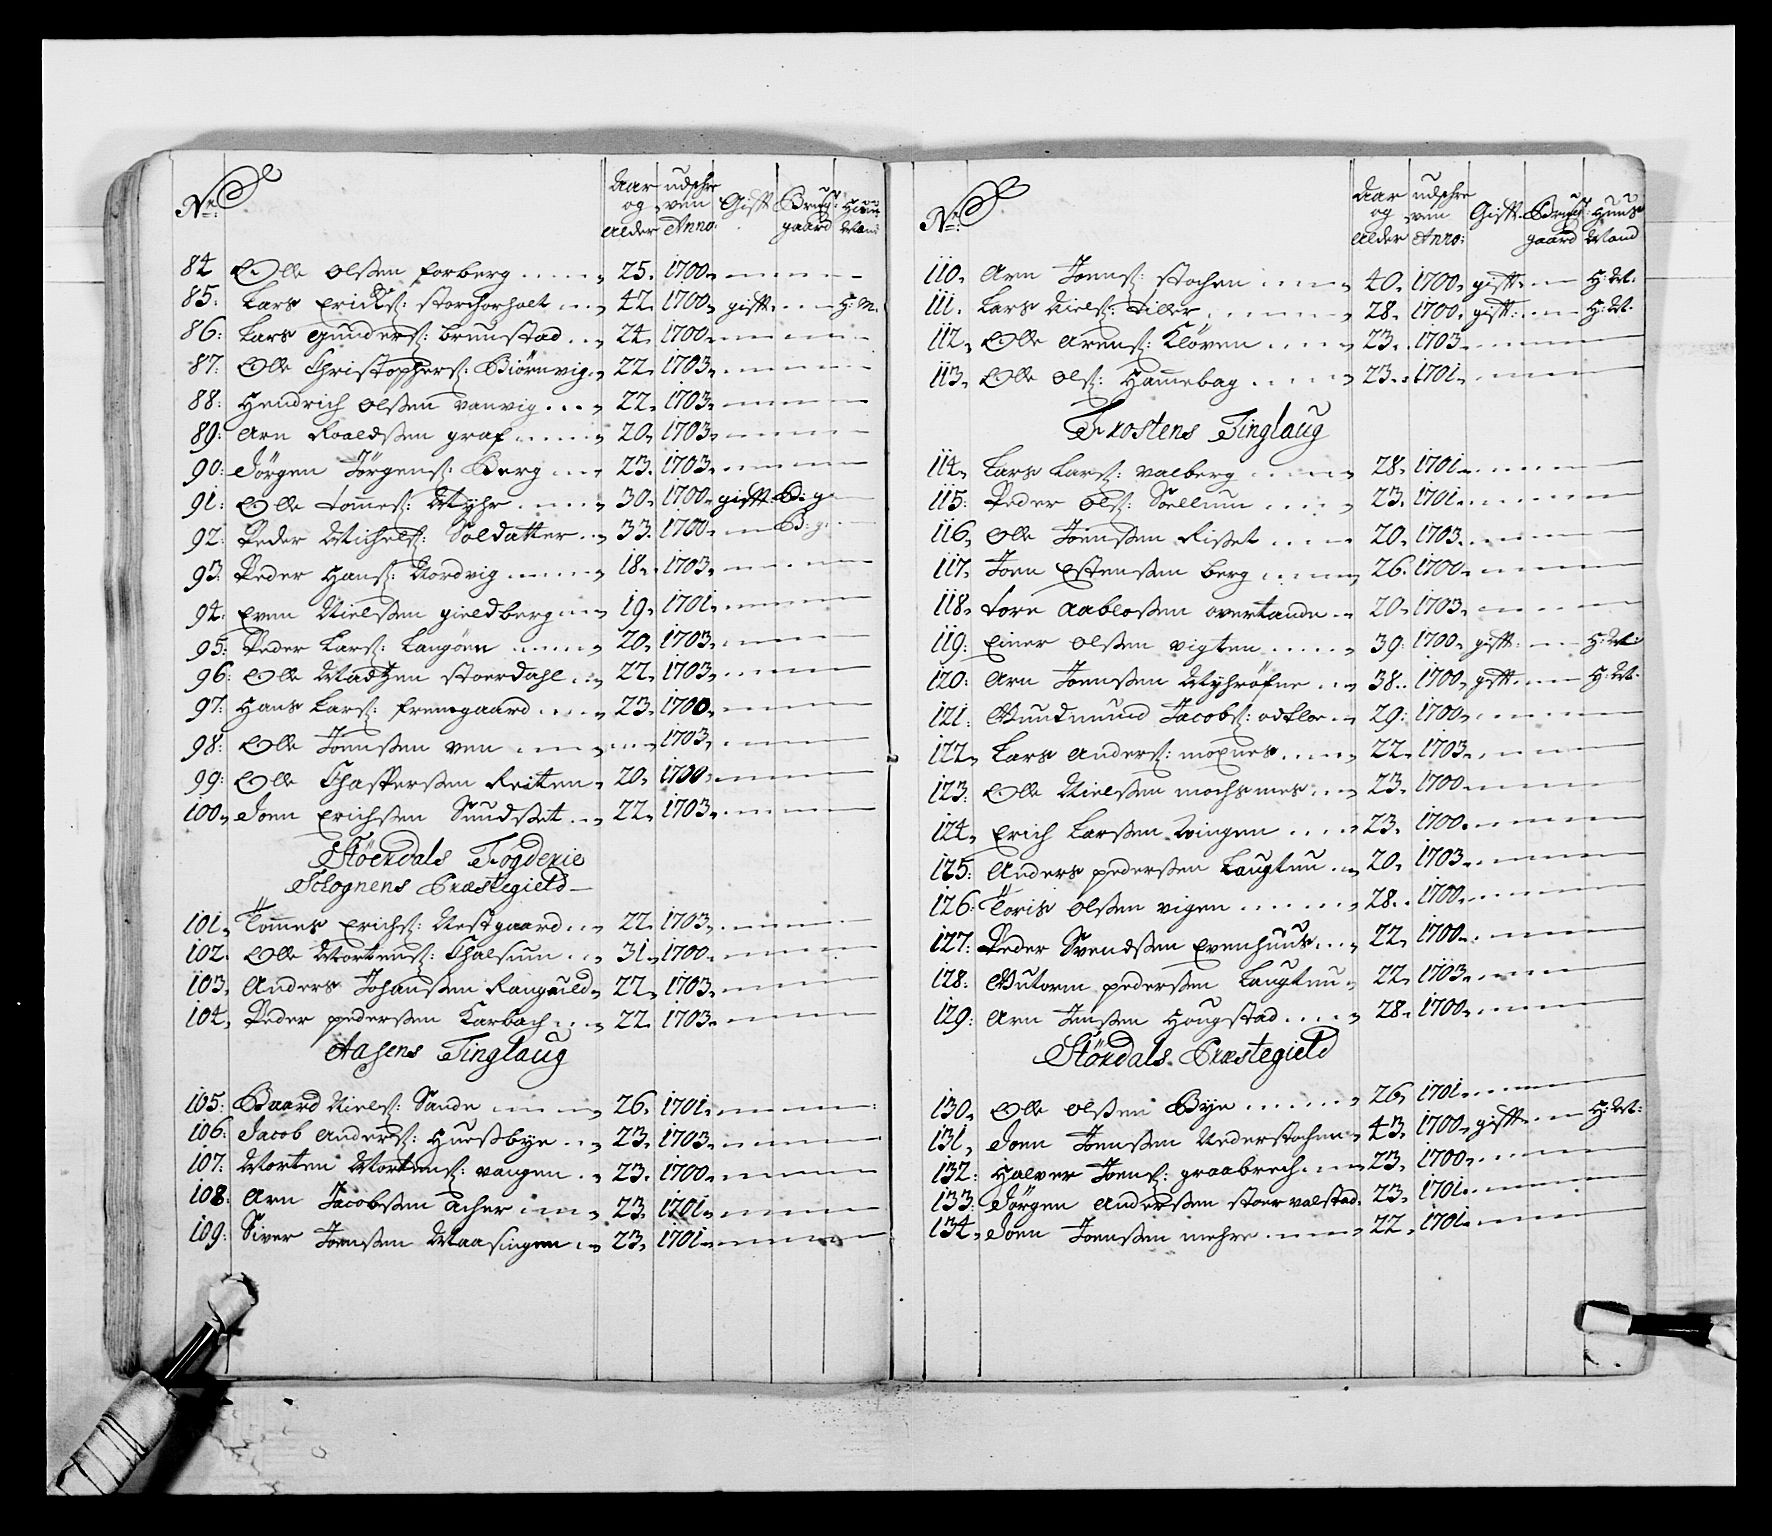 No: Aar og Alder udschreven Anno: Gift Brug: gaard Huus Mand
84 Olle Olssen forberg 25. 1700
85: Lars Erichs: storchorholt 42. 1700 gift H: M:
86: Lars Gunders: brunstad 24. 1700
87: Olle Christophers: Biörnvig 22 1703
88: Hendrich Olssen vanvig 22. 1703
89: Arn Roaldssen graf 20. 1703
90: Jörgen Jörgens: Berg 23. 1703
91: Olle Tomes: Myhr 30. 1700 gift B: g:
92: Peder Michels: Soldatter 33. 1700 B: g:
93: Peder Hans: Nordvig 18. 1703
94: Even Nielssen gieldberg 19. 1701
95: Peder Lars: Langöen 20. 1703
96: Olle Madtzen stoerdahl 22. 1703
97: Hans Lars: fremgaard 23. 1700
98: Olle Joenssen ven 1703
99: Olle Chasperssen Reiten 20. 1700
100. Joen Erichssen Sundset 22. 1703
Stördals Fögderie
Schognens Præstegield
101. Tomes Erichs: Nestgaard 22. 1703
102. Olle Mortens: Chalsium 31. 1700
103. Anders Johanssen Ranguld 22. 1703
104. Peder pederssen Karbach 22. 1703
Aasens Tinglaug
105: Baard Niels: Sande 26. 1701
106: Jacob Anders: Huessbye 23. 1703
107: Morten Mortens: vangen 23. 1700
108: Arn Jacobssen acher 23. 1701
109: Siver Joenssen Maasingen 23. 1701
No: Aar og Alder udschreven Anno: Gift Brug gaard Huus Mand
110. Arn Joens: stochen 40. 1700. gift H: M:
111. Lars Niels: Tiller 28. 1700. gift: H: M:
112. Olle Arens: Klöven 23. 1703
113. Olle Ols: Hammebag 23. 1701
Frostens Tinglaug
114. Lars Lars: valberg 28. 1701
115: Peder Ols: Soellum 23. 1701
116. Olle Joenssen Risset 20. 1703
117. Joen Estenssen berg 26. 1700
118. Tore Aablossen overlande 20. 1703
119: Einer Olssen vigten 39: 1700 gift: H: M:
120: Arn Joenssen Myhröfne 38. 1700 gift H: M:
121: Gundmund Jacobs: odkloe 29: 1700
122. Lars Anders: moxnes 22. 1703
123: Olle Nielssen mochsnes 23. 1700
124. Erich Larssen Vingen 23. 1700
125: Anders pederssen Laugtuu 20. 1703
126: Joris Olssen vigen 28. 1700
127: Peder Svendssen Evenhuus 22. 1700
128: Gutorm pederssen Laugtuu 22. 1703
129: Arn Jenssen Hougstad 28. 1700
Stördals Præstegield
130. Olle Olssen Bye 26. 1701
131. Joen Joenssen Nederstochen 43. 1700 gift H: M:
132: Halver Joens: graabrech 23. 1700
133: Jörgen Anderssen stoervalstad 23. 1701
134. Joen Joenssen mehre 22. 1701